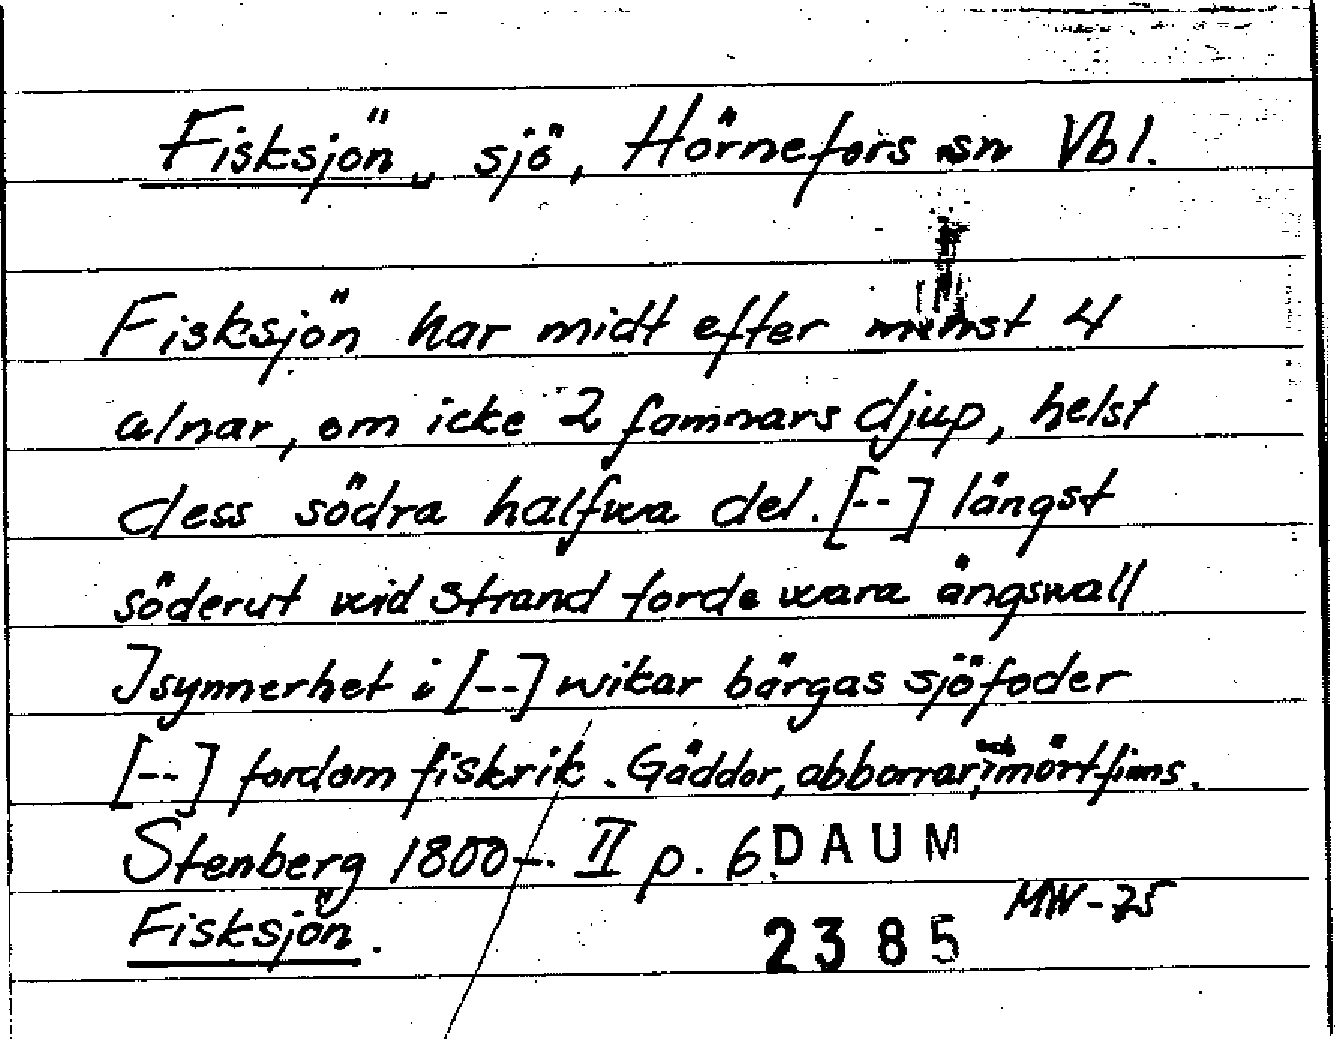 Fisksjön, sjö, Hörnefors sn Vbl.
Fisksjön har midt efter minst 4
alnar, om icke 2 famnars djup, helst
dess södra halfwa del. [--] längst
söderut wid strand torde wara ängswall
Isynnerhet i [--] wikar bärgas sjöfoder
[--] fordom fiskrik. Gäddor, abborrar, och mört finns.
Stenberg 1800-. II p. 6. DAUM
Fisksjön. MW-75
2385